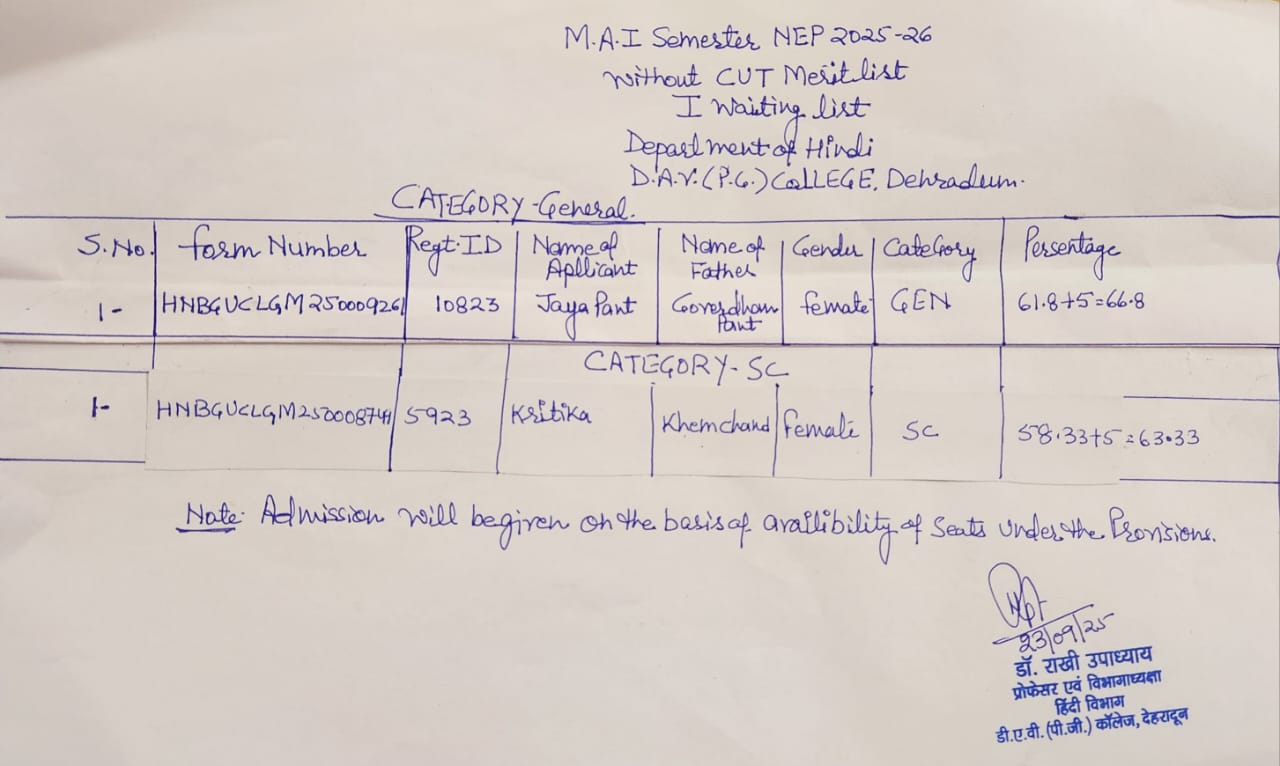 M.A.I Semester NEP 2025-26
Without CUT Merit list
I Waiting list
Department of Hindi
D.A.V.(P.G.) CollEGE, Dehradun.
CATEGORY-General.
S.No. Form Number Regt.ID Name of Apllicant Name of Father Gender CateGory Persentage
1- HNBGUCLGM250009261 10823 Jaya Pant Goverdhan Pant female GEN 61.8+5=66.8
CATEGORY-SC
1- HNBGUCLGM250008741 5923 Kritika Khemchand female SC 58.33+5=63.33
Note: Admission will be given on the basis of availibility of Seats under the Provisions.
23/09/25
डॉ. राखी उपाध्याय
प्रोफेसर एवं विभागाध्यक्षा
हिंदी विभाग
डी.ए.वी.(पी.जी.) कॉलेज, देहरादून